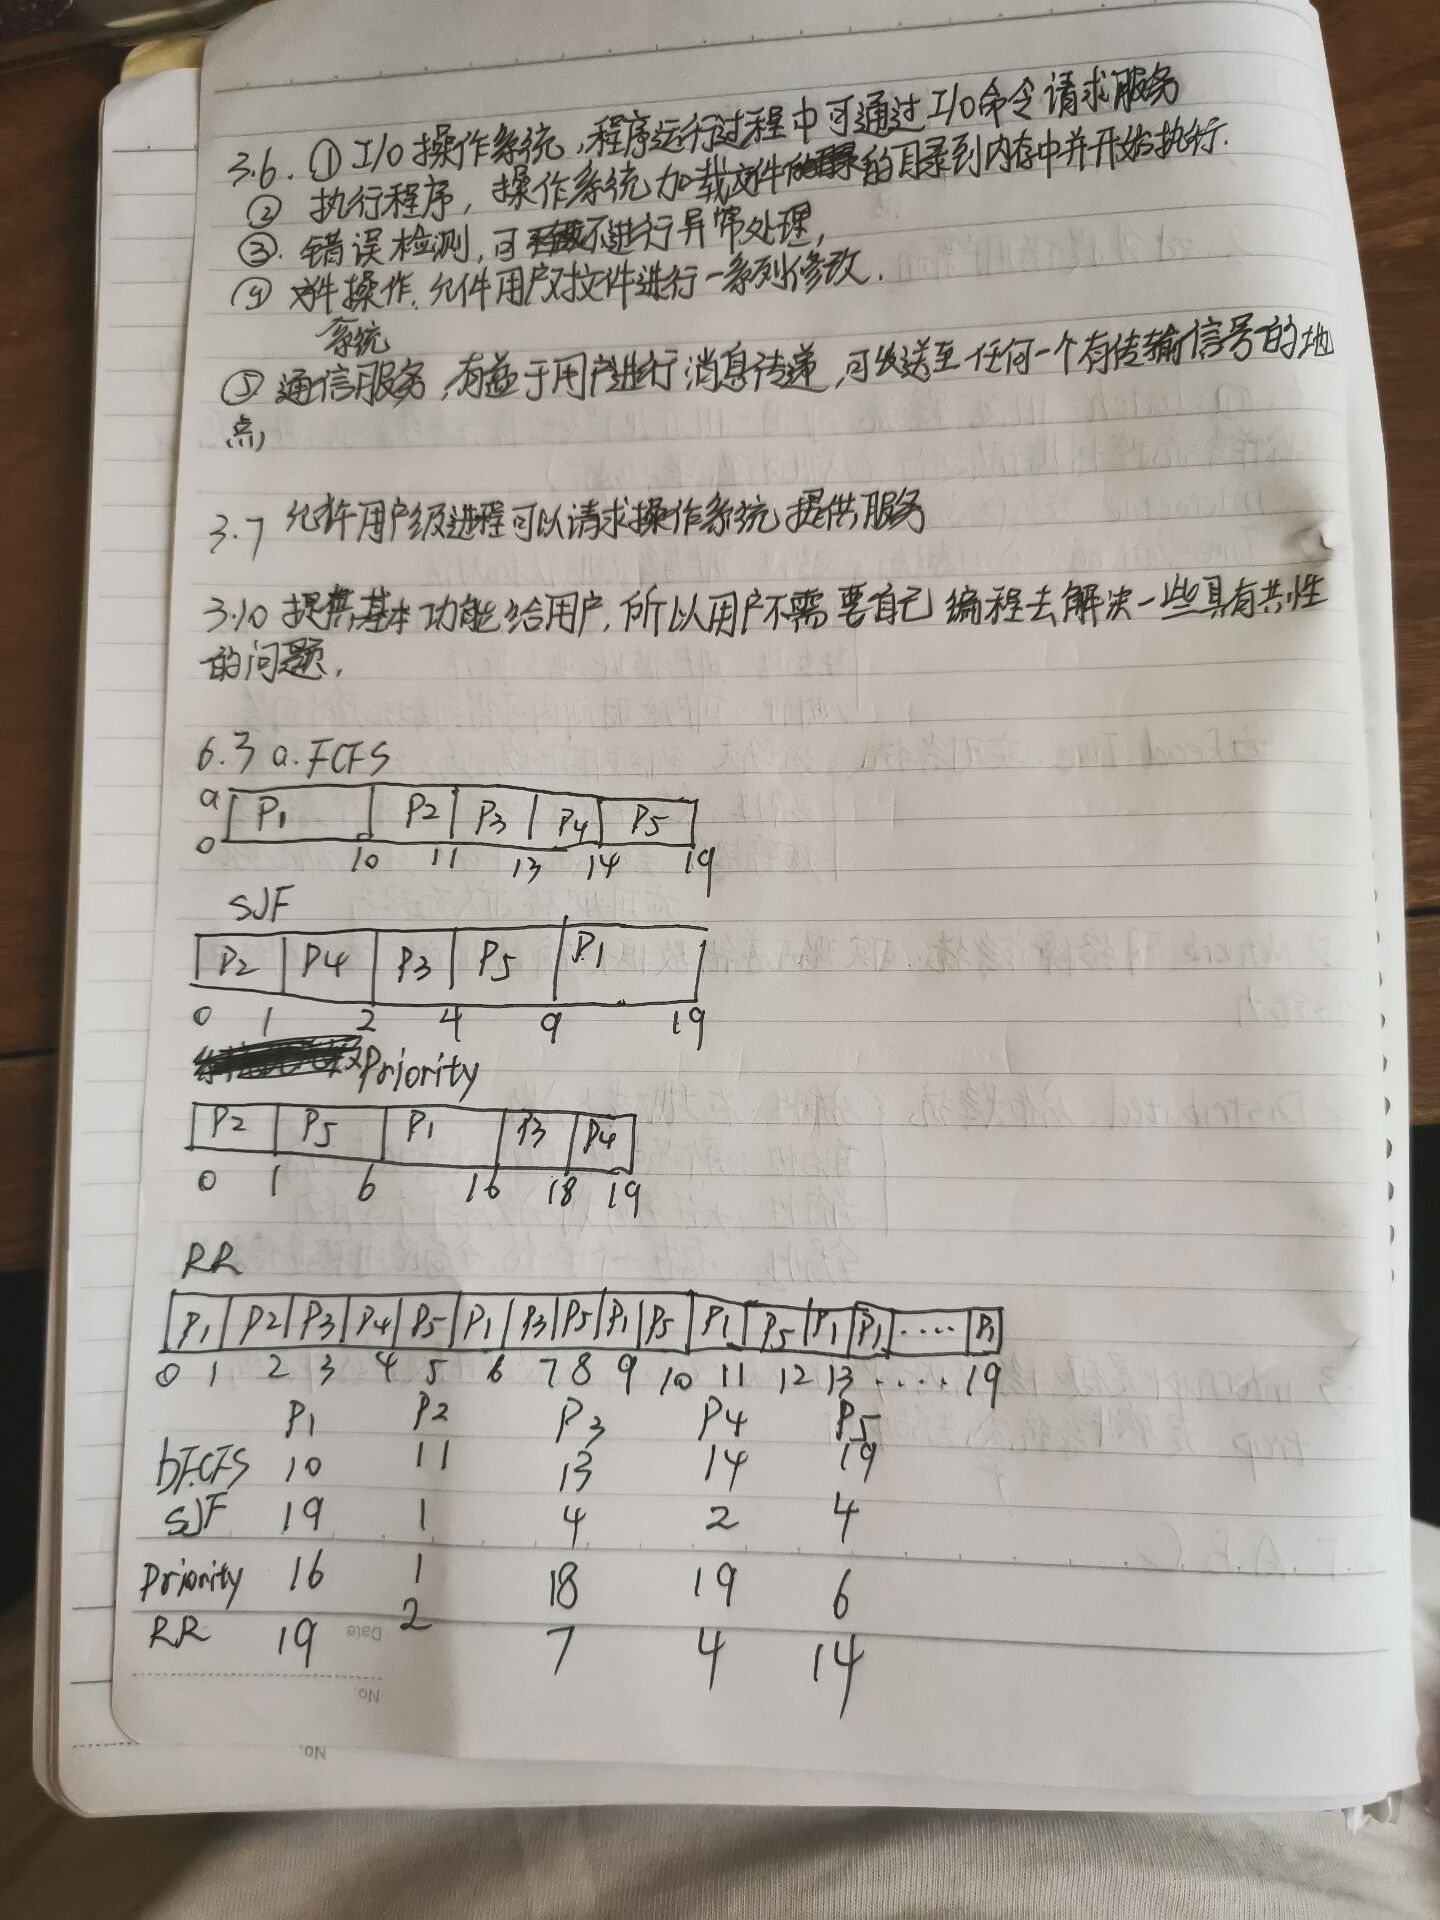 3.6. ① I/O 操作系统,程序运行过程中可通过 I/O 命令请求服务
② 执行程序,操作系统加载文件的目录到内存中并开始执行.
③. 错误检测,可不进行异常处理,
④ 文件操作.允许用户对文件进行一系列修改.
系统
⑤ 通信服务,有益于用户进行消息传递,可发送至任何一个有传输信号的地
点,
3.7 允许用户级进程可以请求操作系统提供服务
3.10 提供基本功能给用户,所以用户不需要自己编程去解决一些具有共性
的问题.
6.3 a. FCFS
a P1 P2 P3 P4 P5
0 10 11 13 14 19
SJF
P2 P4 P3 P5 P1
0 1 2 4 9 19
Priority
P2 P5 P1 P3 P4
0 1 6 16 18 19
RR
P1 P2 P3 P4 P5 P1 P3 P5 P1 P5 P1 P5 P1 P1 .... P1
0 1 2 3 4 5 6 7 8 9 10 11 12 13 .... 19
P1 P2 P3 P4 P5
b FCFS 10 11 13 14 19
SJF 19 1 4 2 4
Priority 16 1 18 19 6
RR 19 2 7 4 14
Date
No.
No.